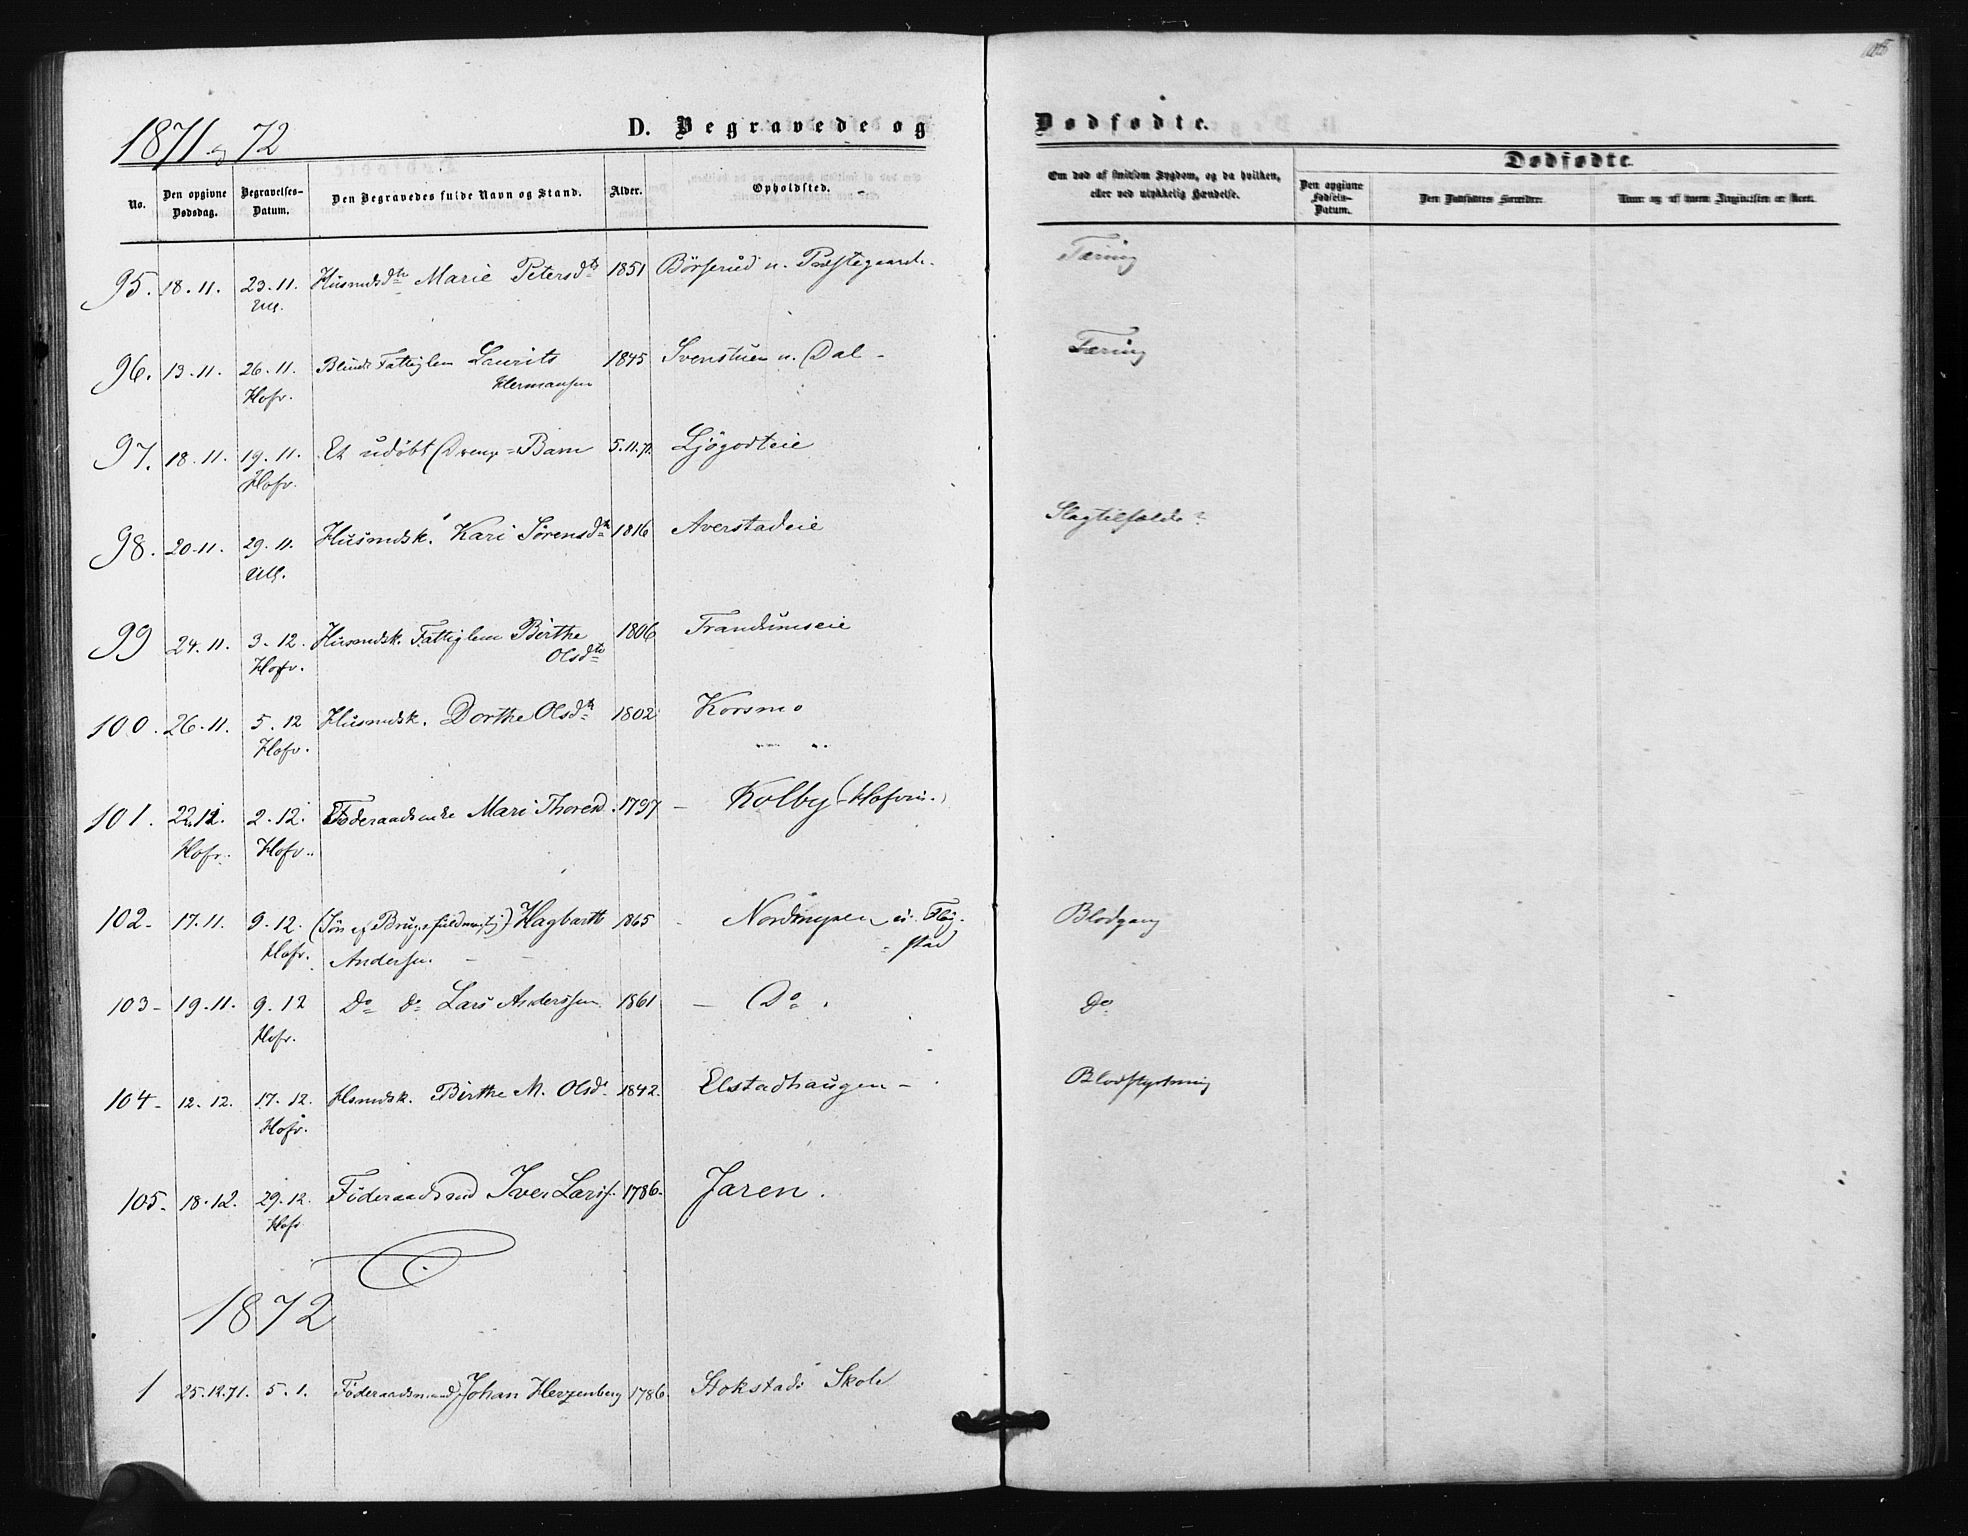 105
1871 og 72
D. Begravede og Dødfødte.
Dødfødte.
No.
Den opgivne Dødsdag.
Begravelses-Datum.
Den Begravedes fulde Navn og Stand.
Alder.
Opholdsted.
Om død af smitsom Sygdom, og da hvilken, eller ved ulykkelig Hændelse.
Den opgivne Fødsels-Datum.
Den Dødfødtes Forældre.
Naar og af hvem Angivelsen er skeet.
95. 18.11. 23.11. Husmdsdtr Marie Petersdtr 1851 Børserud u. Præstegaard. Tæring
Ull.
96. 13.11. 26.11. Blind Fattiglem Laurits 1845 Svenstuen u. Dal - Tæring
Hofv. Hermansen
97. 18.11. 19.11. Et udøbt Drenge=Barn 5.11.71. Ljøgodteie
Hofv.
98. 20.11. 29.11. Husmdsk. Kari Sørensdtr 1816 Averstadeie Slagtilfælde?
Ull.
99 24.11. 3.12. Husmdsk. Fattiglem Birthe 1806 Trandumseie
Hofv. Olsdtr
100. 26.11. 5.12 Husmdsk. Dorthe Olsdtr 1802 Korsmo
Hofv.
101. 2.12. Føderaadsenke Mari Thoresd. 1797 - Kolby (Hofvin.)
Hofv. Hofv.
102- 17.11. 9.12. (Søn af Brugsfuldmægtig) Hagbarth 1865 - Nordmyren u. Fløg-
Hofv. Andersen. - - =stad Blodgang
103- 19.11. 9.12 Do do Lars Anderssen 1861 - Do. Do
Hofv.
104- 12.12. 17.12. Hsmdsk. Birthe M. Olsd. 1842. Elstadhaugen - Blodstyrtning
Hofv.
105. 18.12. 29.12. Føderaadsmd Iver Larss. 1786. Jaren.
Hofv
1872
1 25.12.71. 5.1. Føderaadsmand Johan Herzenberg 1786. Stokstad Skole